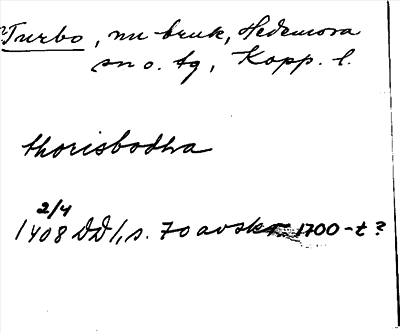 Turbo, nu bruk, Hedemora
sn o. tg, Kopp. l.
thorisbodha
2/4
1408 DD1, s. 70 avskr 1700-t?